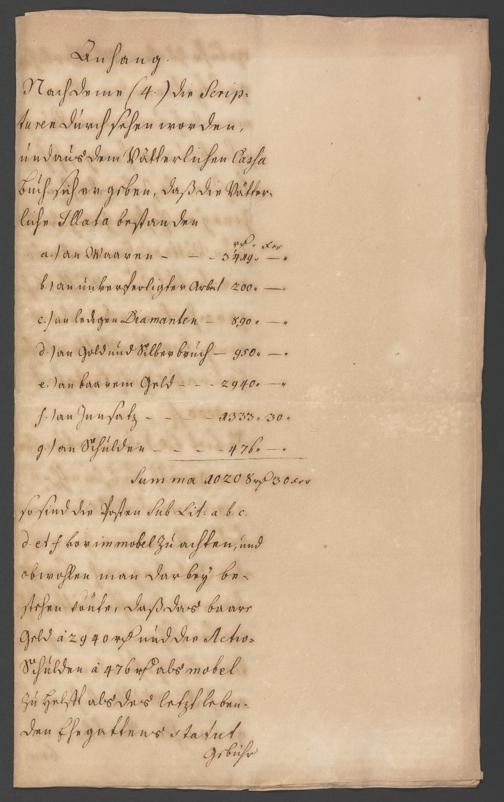 Anhang.
Nachdeme (4.) die Scrip-
turen durchsehen worden,
und aus dem Vätterlichen Cassa
buch sich ergeben, daß die Vätter-
liche Illata bestanden
rth. xer
a.) an Waaren - - - 3419. —.
b.) an unverfertigter Arbeit 200. —.
c.) an ledigen Diamanten — 890. —.
d.) an Gold und Silberbruch — 950. —.
e.) an baarem Geld - - - 2940. —.
f.) an Innsatz - - - - 1333. 30.
g.) an Schulden - - - - 476. —.
Summa 10208 rth 30 xer
so sind die Posten sub Lit: a. b. c.
d. et f. vor immobel zu achten, und
obwohlen man darbey be-
stehen könte, daß das baare
Geld à 2940 rth und die Activ-
Schulden à 476 rth als mobel
zu Helfft als des letzt leben-
den Ehegattens Statut
Gebühr